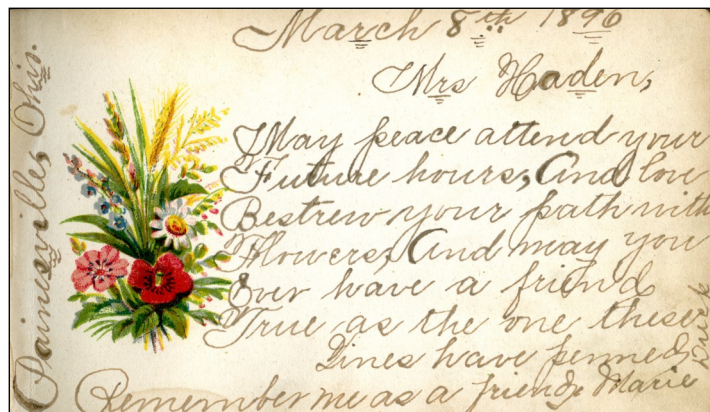 March 8th 1896
Mrs Haden,
May peace attend your
Future hours, And love
Bestrew your path with
Flowers, And may you
Ever have a friend
True as the one these
Lines have penned,
Remember me as a friend, Marie
Painesville, Ohio.